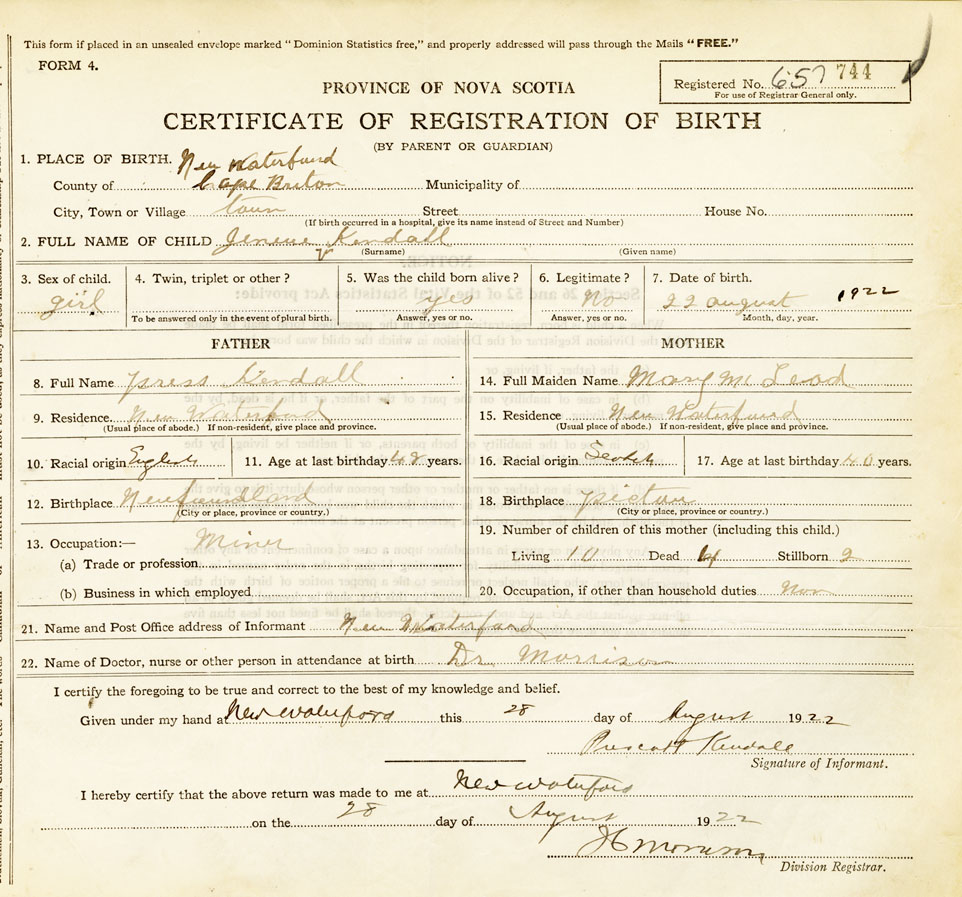 This form if placed in an unsealed envelope marked "Dominion Statistics free," and properly addressed will pass through the Mails "FREE."
FORM 4.
Registered No. 657 744
For use of Registrar General only.
PROVINCE OF NOVA SCOTIA
CERTIFICATE OF REGISTRATION OF BIRTH
(BY PARENT OR GUARDIAN)
1. PLACE OF BIRTH. New Waterfurd
County of Cape Breton Municipality of
City, Town or Village town Street House No.
(If birth occurred in a hospital, give its name instead of Street and Number)
2. FULL NAME OF CHILD Kendall
(Surname) (Given name)
3. Sex of child. 4. Twin, triplet or other? 5. Was the child born alive? 6. Legitimate? 7. Date of birth.
girl yes No 22 august 1922
To be answered only in the event of plural birth. Answer, yes or no. Answer, yes or no. Month, day, year.
FATHER MOTHER
8. Full Name press Kendall 14. Full Maiden Name Mary Mc Leod
9. Residence. New Waterfurd 15. Residence New Waterfurd
(Usual place of abode.) If non-resident, give place and province. (Usual place of abode.) If non-resident, give place and province.
10. Racial origin English 11. Age at last birthday 48 years. 16. Racial origin Scotch 17. Age at last birthday 40 years.
12. Birthplace Newfoundland 18. Birthplace pictou
(City or place, province or country.) (City or place, province or country.)
19. Number of children of this mother (including this child.)
13. Occupation:— Miner
(a) Trade or profession Living 10 Dead 4 Stillborn 2
(b) Business in which employed 20. Occupation, if other than household duties
21. Name and Post Office address of Informant New Waterfurd
22. Name of Doctor, nurse or other person in attendance at birth Dr. Morrison
I certify the foregoing to be true and correct to the best of my knowledge and belief.
Given under my hand at New Waterford this 28 day of August 1922
Prescott Kendall
Signature of Informant.
I hereby certify that the above return was made to me at New Waterford
on the 28 day of August 1922
Morrison
Division Registrar.